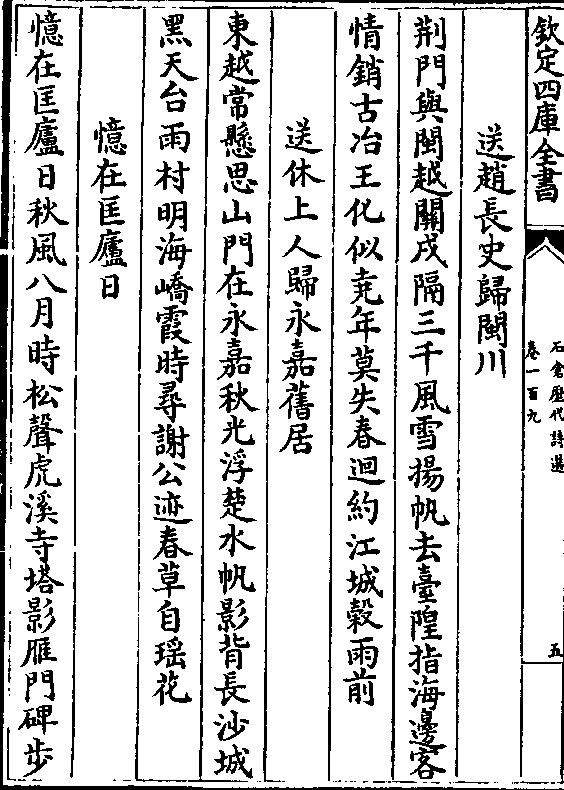 欽定四庫全書
石倉歷代詩選
卷一百九
五
送趙長史歸閩川
荆門與閩越關戍隔三千風雪揚帆去臺隍指海邊客
情銷古冶王化似堯年莫失春迴約江城穀雨前
送休上人歸永嘉舊居
東越常懸思山門在永嘉秋光浮楚水帆影背長沙城
黑天台雨村明海嶠霞時尋謝公迹春草自瑶花
憶在匡廬日
憶在匡廬日秋風八月時松聲虎溪寺塔影雁門碑步